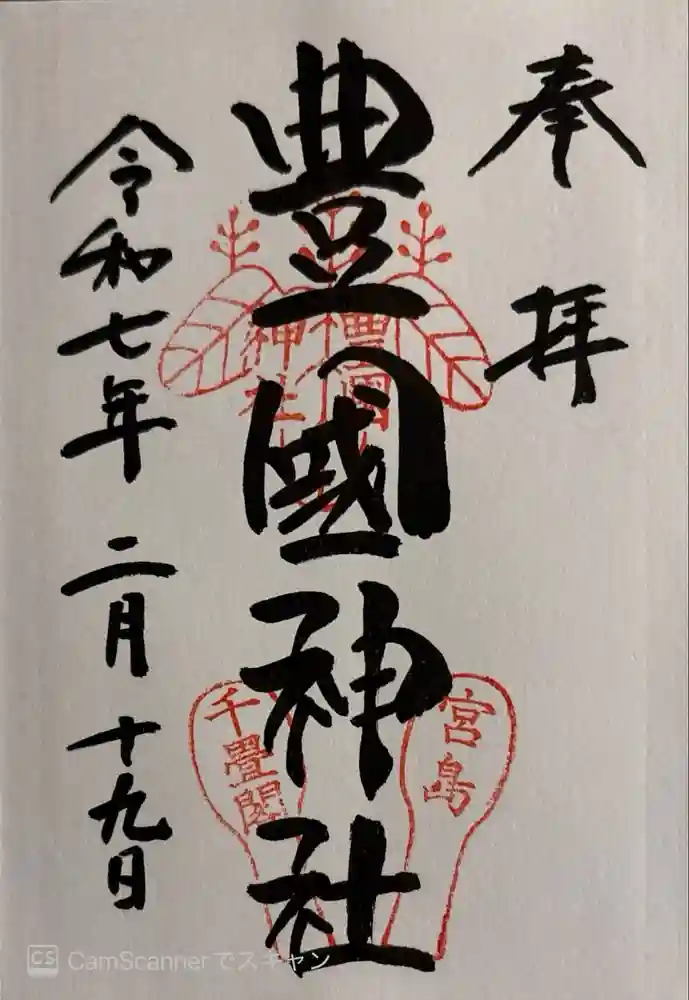 奉拝
豊國神社
豊國
神社
宮島
千畳閣
令和七年二月十九日
CS CamScannerでスキャン